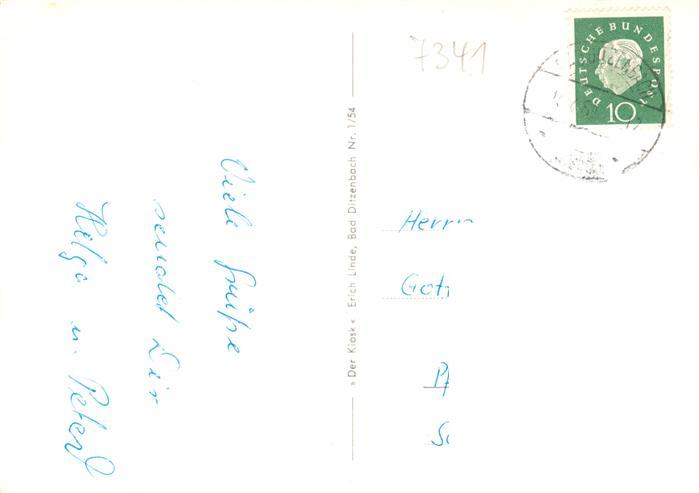 7341
DEUTSCHE BUNDESPOST
10
Viele Grüße
sendet Dir
Helga u. Peter
» Der Kiosk « Erich Linde, Bad Ditzenbach Nr. 1/54
Herrn
Got
Pf
Sc